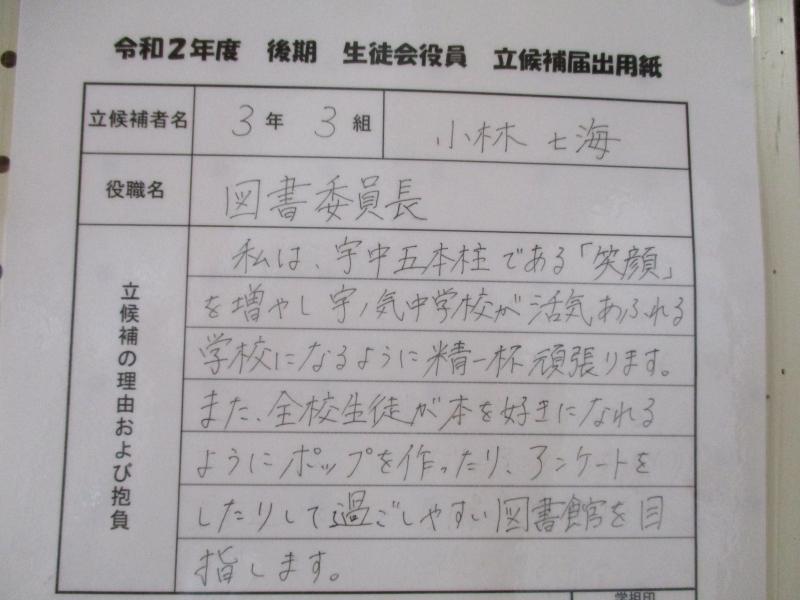 令和2年度 後期 生徒会役員 立候補届出用紙
立候補者名 3年 3組 小林 七海
役職名 図書委員長
立候補の理由および抱負
私は、宇中五本柱である「笑顔」
を増やし宇ノ気中学校が活気あふれる
学校になるように精一杯頑張ります。
また、全校生徒が本を好きになれる
ようにポップを作ったり、アンケートを
したりして過ごしやすい図書館を目
指します。
学担印